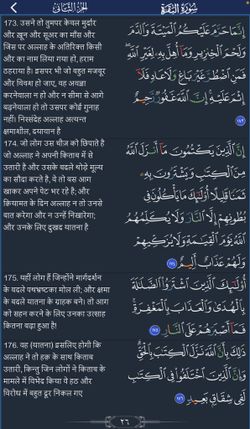 الجزء الثاني
سورة البقرة
173. उसने तो तुमपर केवल मुर्दार
और ख़ून और सूअर का माँस और
जिस पर अल्लाह के अतिरिक्त किसी
और का नाम लिया गया हो, हराम
ठहराया है। इसपर भी जो बहुत मजबूर
और विवश हो जाए, वह अवज्ञा
करनेवाला न हो और न सीमा से आगे
बढ़नेवाला हो तो उसपर कोई गुनाह
नहीं। निस्संदेह अल्लाह अत्यन्त
क्षमाशील, दयावान है
إِنَّمَا حَرَّمَ عَلَيْكُمُ ٱلْمَيْتَةَ وَٱلدَّمَ
وَلَحْمَ ٱلْخِنزِيرِ وَمَآ أُهِلَّ بِهِۦ لِغَيْرِ ٱللَّهِ
فَمَنِ ٱضْطُرَّ غَيْرَ بَاغٍ وَلَا عَادٍ فَلَآ
إِثْمَ عَلَيْهِ إِنَّ ٱللَّهَ غَفُورٌ رَّحِيمٌ
١٧٣
174. जो लोग उस चीज़ को छिपाते है
जो अल्लाह ने अपनी किताब में से
उतारी है और उसके बदले थोड़े मूल्य
का सौदा करते है, वे तो बस आग
खाकर अपने पेट भर रहे है; और
क़ियामत के दिन अल्लाह न तो उनसे
बात करेगा और न उन्हें निखारेगा;
और उनके लिए दुखद यातना है
إِنَّ ٱلَّذِينَ يَكْتُمُونَ مَآ أَنزَلَ ٱللَّهُ
مِنَ ٱلْكِتَٰبِ وَيَشْتَرُونَ بِهِۦ
ثَمَنًا قَلِيلًا أُو۟لَٰٓئِكَ مَا يَأْكُلُونَ فِى
بُطُونِهِمْ إِلَّا ٱلنَّارَ وَلَا يُكَلِّمُهُمُ
ٱللَّهُ يَوْمَ ٱلْقِيَٰمَةِ وَلَا يُزَكِّيهِمْ
وَلَهُمْ عَذَابٌ أَلِيمٌ ١٧٤
175. यहीं लोग हैं जिन्होंने मार्गदर्शन
के बदले पथभ्रष्टका मोल ली; और क्षमा
के बदले यातना के ग्राहक बने। तो आग
को सहन करने के लिए उनका उत्साह
कितना बढ़ा हुआ है!
أُو۟لَٰٓئِكَ ٱلَّذِينَ ٱشْتَرَوُا۟ ٱلضَّلَٰلَةَ
بِٱلْهُدَىٰ وَٱلْعَذَابَ بِٱلْمَغْفِرَةِ
فَمَآ أَصْبَرَهُمْ عَلَى ٱلنَّارِ ١٧٥
176. वह (यातना) इसलिए होगी कि
अल्लाह ने तो हक़ के साथ किताब
उतारी, किन्तु जिन लोगों ने किताब के
मामले में विभेद किया वे हठ और
विरोध में बहुत दूर निकल गए
ذَٰلِكَ بِأَنَّ ٱللَّهَ نَزَّلَ ٱلْكِتَٰبَ بِٱلْحَقِّ
وَإِنَّ ٱلَّذِينَ ٱخْتَلَفُوا۟ فِى ٱلْكِتَٰبِ
لَفِى شِقَاقٍۭ بَعِيدٍ ١٧٦
٢٦